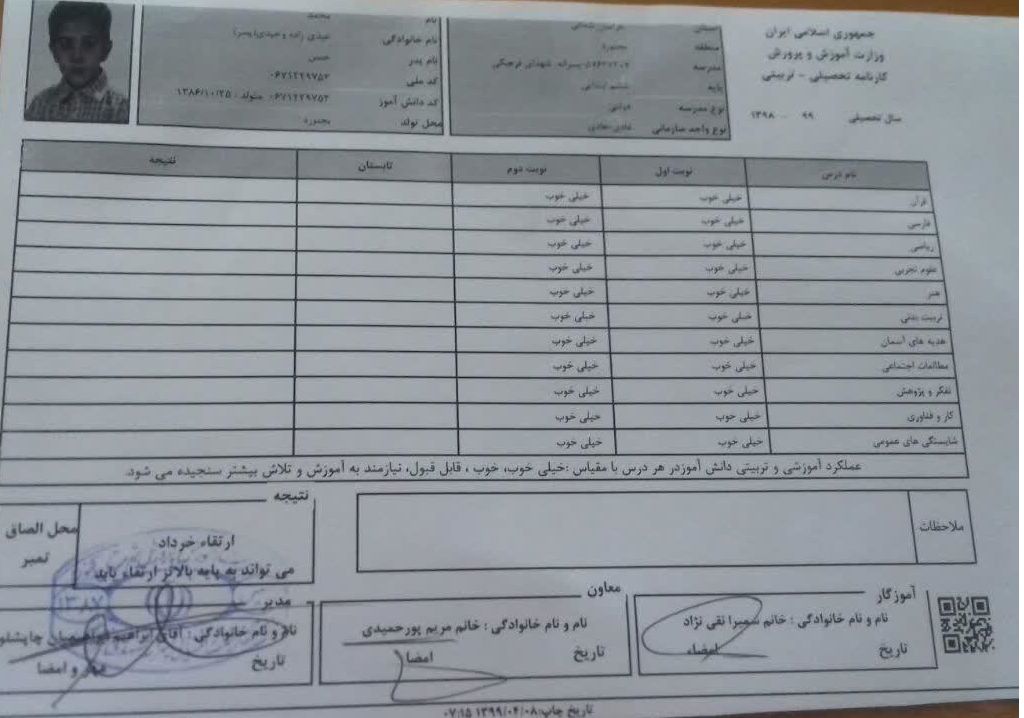 جمهوری اسلامی ایران
وزارت آموزش و پرورش
کارنامه تحصیلی - تربیتی
سال تحصیلی ۹۹ - ۱۳۹۸
استان خراسان شمالی
منطقه بجنورد
مدرسه پسرانه شهدای فرهنگی
پایه ششم ابتدایی
نوع مدرسه دولتی
نوع واحد سازمانی عادی-عادی
نام محمد
نام خانوادگی
نام پدر حسن
کد ملی ۰۶۷۱۲۲۹۷۵۲
کد دانش آموز ۰۶۷۱۲۲۹۷۵۲ متولد : ۱۳۸۶/۱۰/۲۵
محل تولد بجنورد
نام درس نوبت اول نوبت دوم تابستان نتیجه
قرآن خیلی خوب خیلی خوب
فارسی خیلی خوب خیلی خوب
ریاضی خیلی خوب خیلی خوب
علوم تجربی خیلی خوب خیلی خوب
هنر خیلی خوب خیلی خوب
تربیت بدنی خیلی خوب خیلی خوب
هدیه های آسمان خیلی خوب خیلی خوب
مطالعات اجتماعی خیلی خوب خیلی خوب
تفکر و پژوهش خیلی خوب خیلی خوب
کار و فناوری خیلی خوب خیلی خوب
شایستگی های عمومی خیلی خوب خیلی خوب
عملکرد آموزشی و تربیتی دانش آموزدر هر درس با مقیاس :خیلی خوب، خوب ، قابل قبول، نیازمند به آموزش و تلاش بیشتر سنجیده می شود.
ملاحظات
نتیجه
ارتقاء خرداد
می تواند به پایه بالاتر ارتقاء یابد
محل الصاق
تمبر
آموزگار
نام و نام خانوادگی : خانم سمیرا نقی نژاد
تاریخ امضاء
معاون
نام و نام خانوادگی : خانم مریم پورحمیدی
تاریخ امضا
مدیر
نام و نام خانوادگی : آقای ابراهیم چاپشلو
تاریخ مهر و امضا
۱۳۸۷
تاریخ چاپ:۱۳۹۹/۰۴/۰۸ ۰۷:۱۵